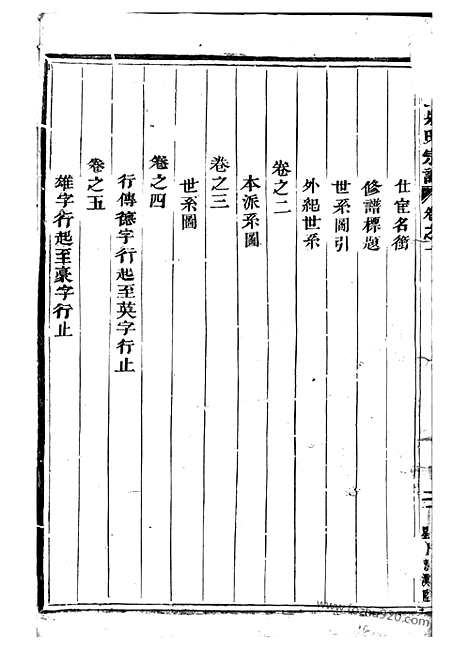 宗譜
卷之
仕宦名銜
修譜標題
世系圖引
外紀世系
卷之二
本派系圖
卷之三
世系圖
卷之四
行傳德字行起至英字行止
卷之五
雄字行起至豪字行止
www.fozhu920.com